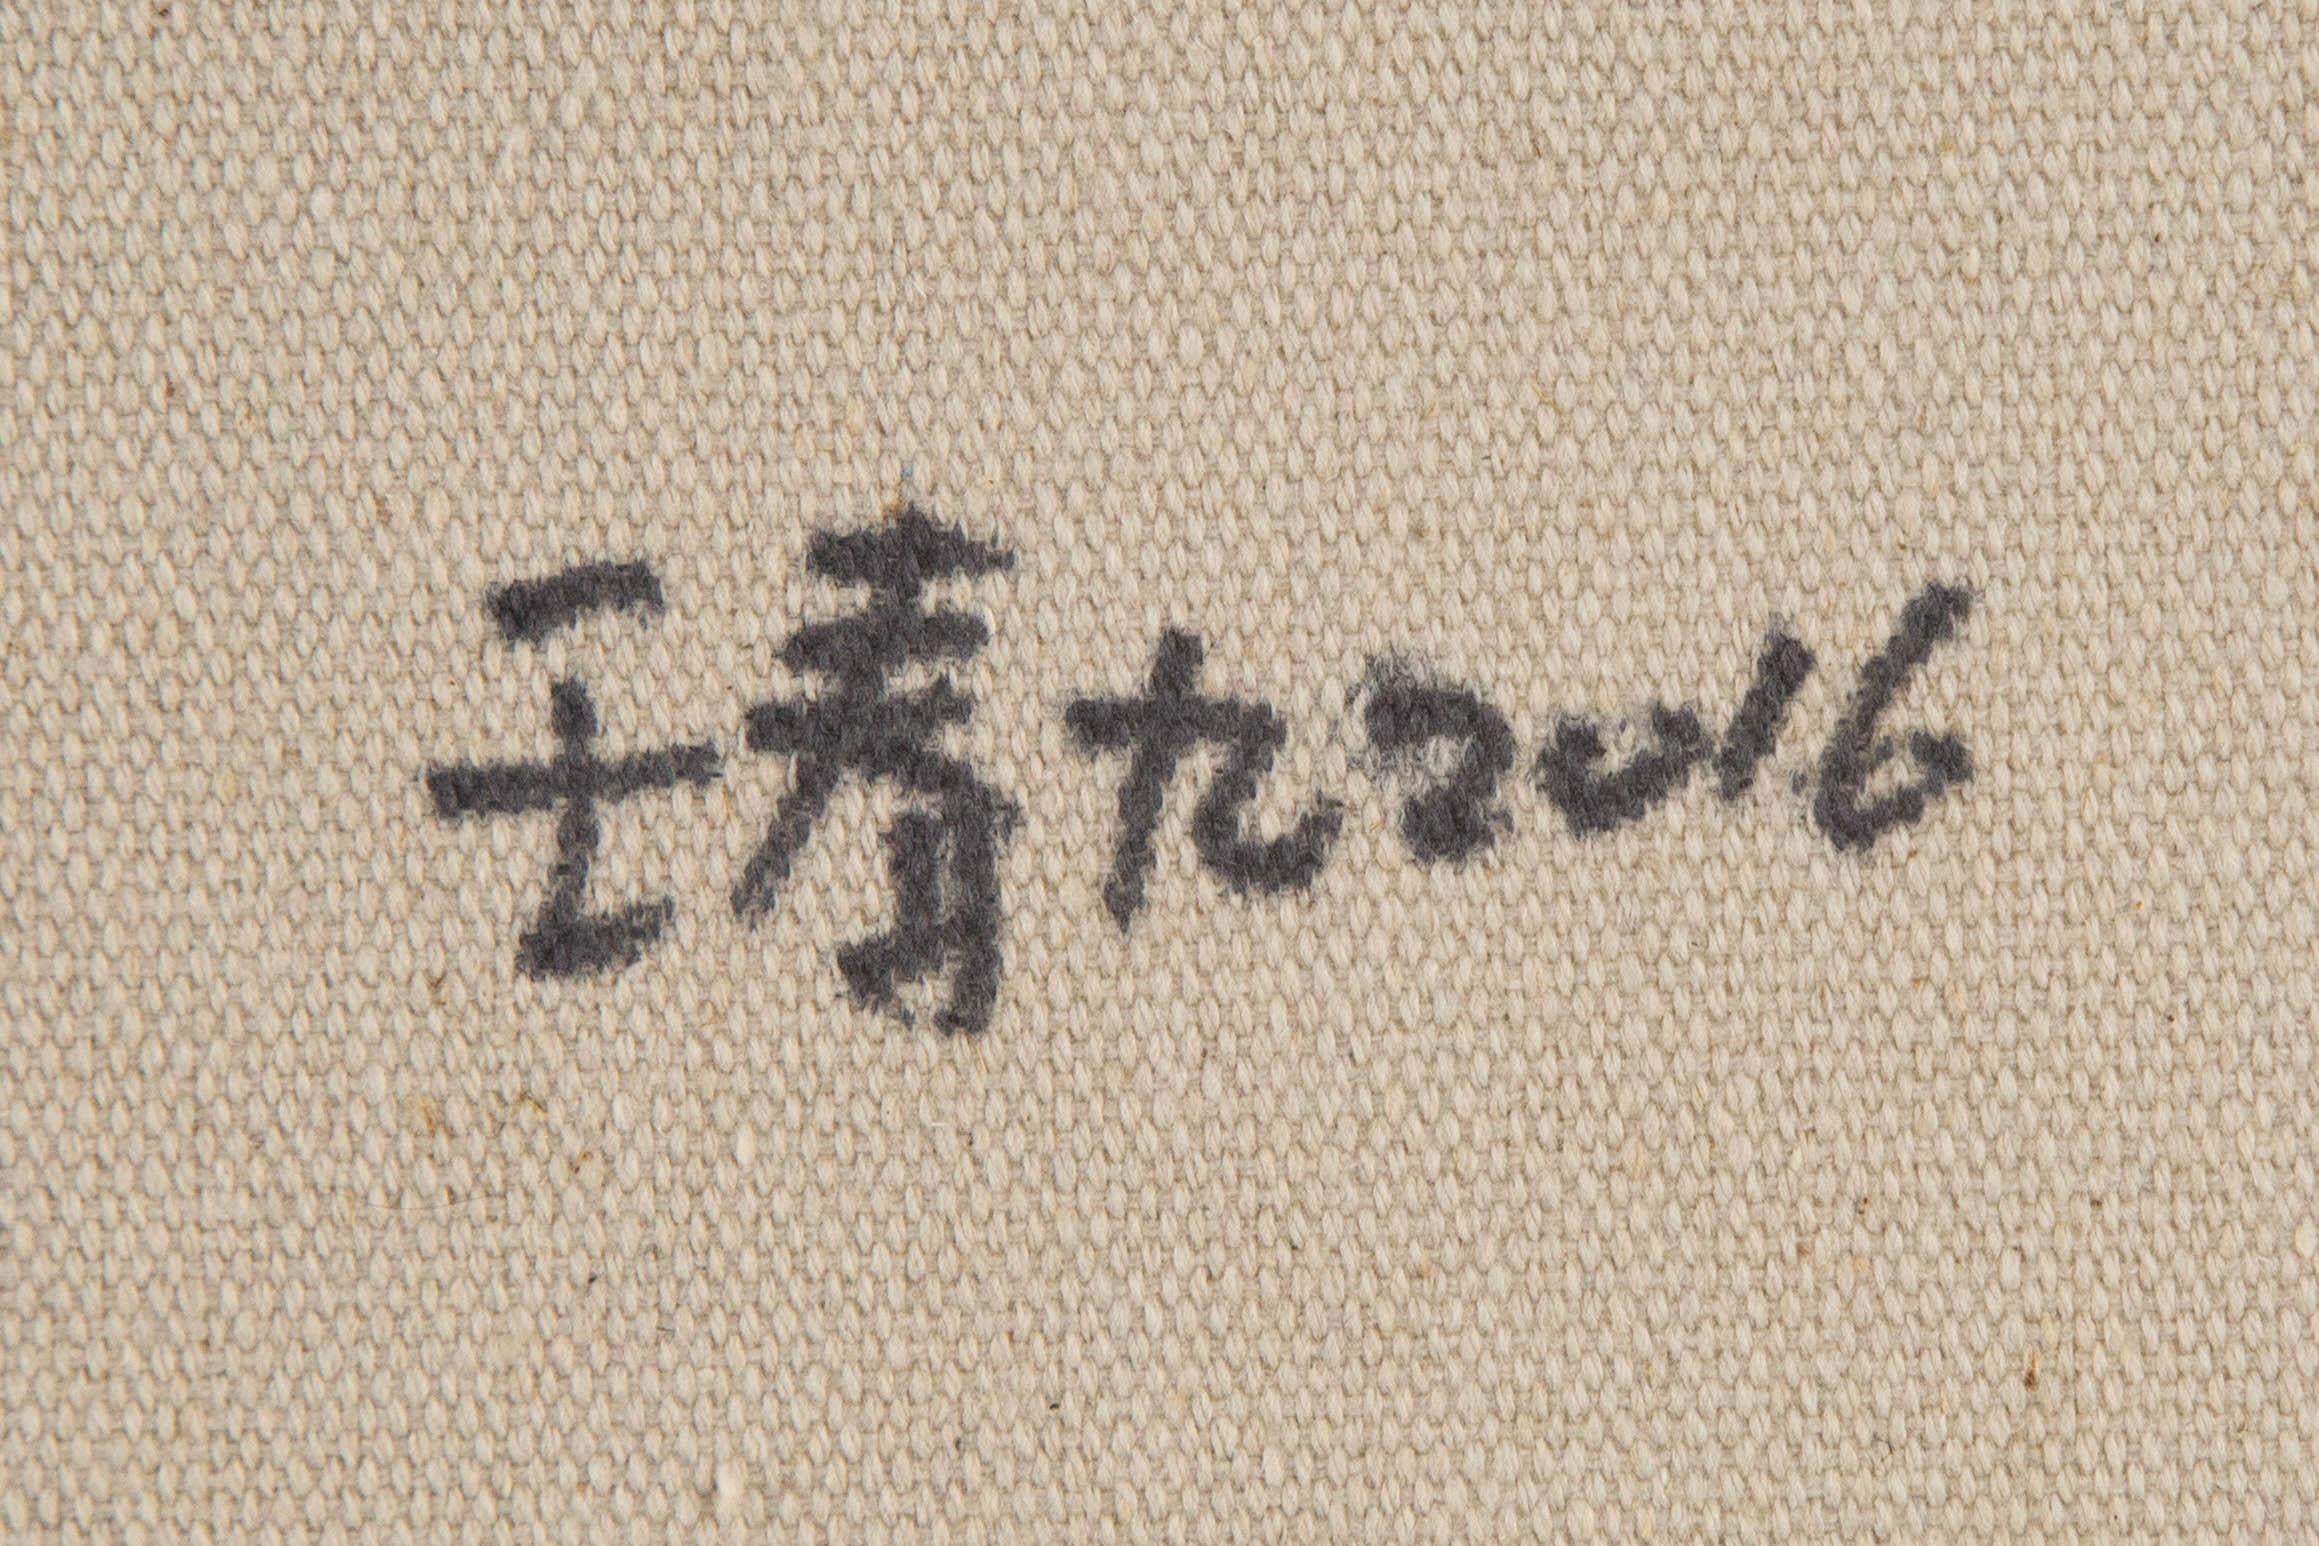 王秀九 2016